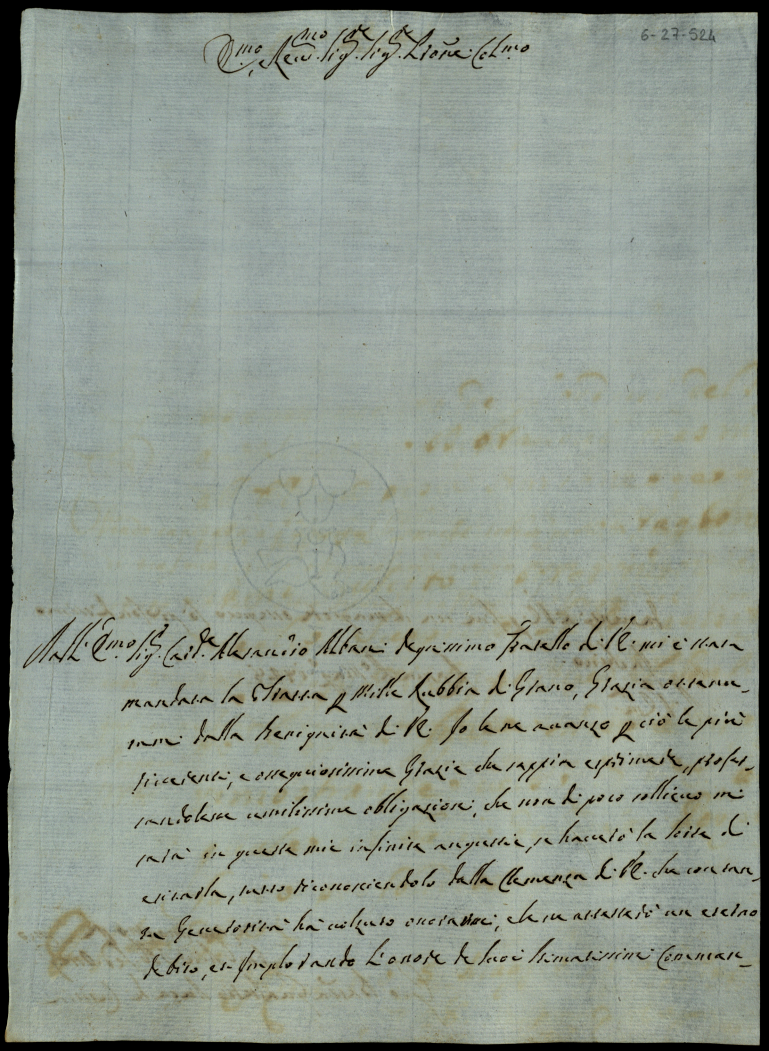 6-27-524
E.mo, e Rev.mo Sig.re Sig.re P.rone Col.mo
Dall' E.mo Sig.r Card.le Alessandro Albani degnissimo Fratello di V.E. mi è stata
mandata la Tratta p mille Rubbia di Grano, Grazia ottenu-
tami dalla benignità di V.E. Io le ne avanzo p ciò le più
riverenti, e ossequiosissime Grazie che sappia esprimere, profes-
sandolene umilissime obligazioni, che non di poco sollievo mi
sarà in queste mie infinite angustie, se haverò la sorte di
esitarla, tutto riconoscendolo dalla Clemenza di V.E. che con tan-
ta Generosità hà voluto onorarmi, e le ne attesterò un eterno
debito, et Implorando l'onore de suoi stimatissimi Comman-